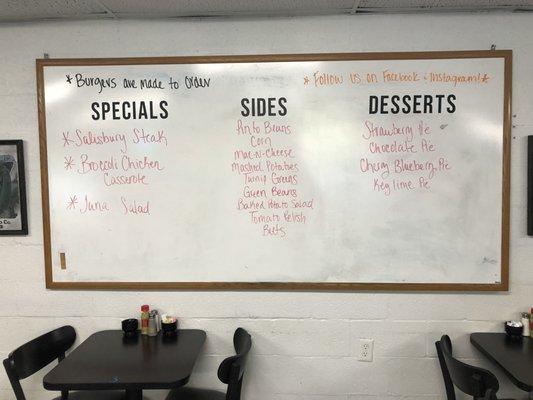 * Burgers are made to order
* Follow us on Facebook + Instagram! *
SPECIALS
* Salisbury Steak
* Broccoli Chicken
Casserole
* Tuna Salad
SIDES
Pinto Beans
Corn
Mac-N-Cheese
Mashed Potatoes
Turnip Greens
Green Beans
Baked Potato Salad
Tomato Relish
Beets
DESSERTS
Strawberry Pie
Chocolate Pie
Cherry Blueberry Pie
Key lime Pie